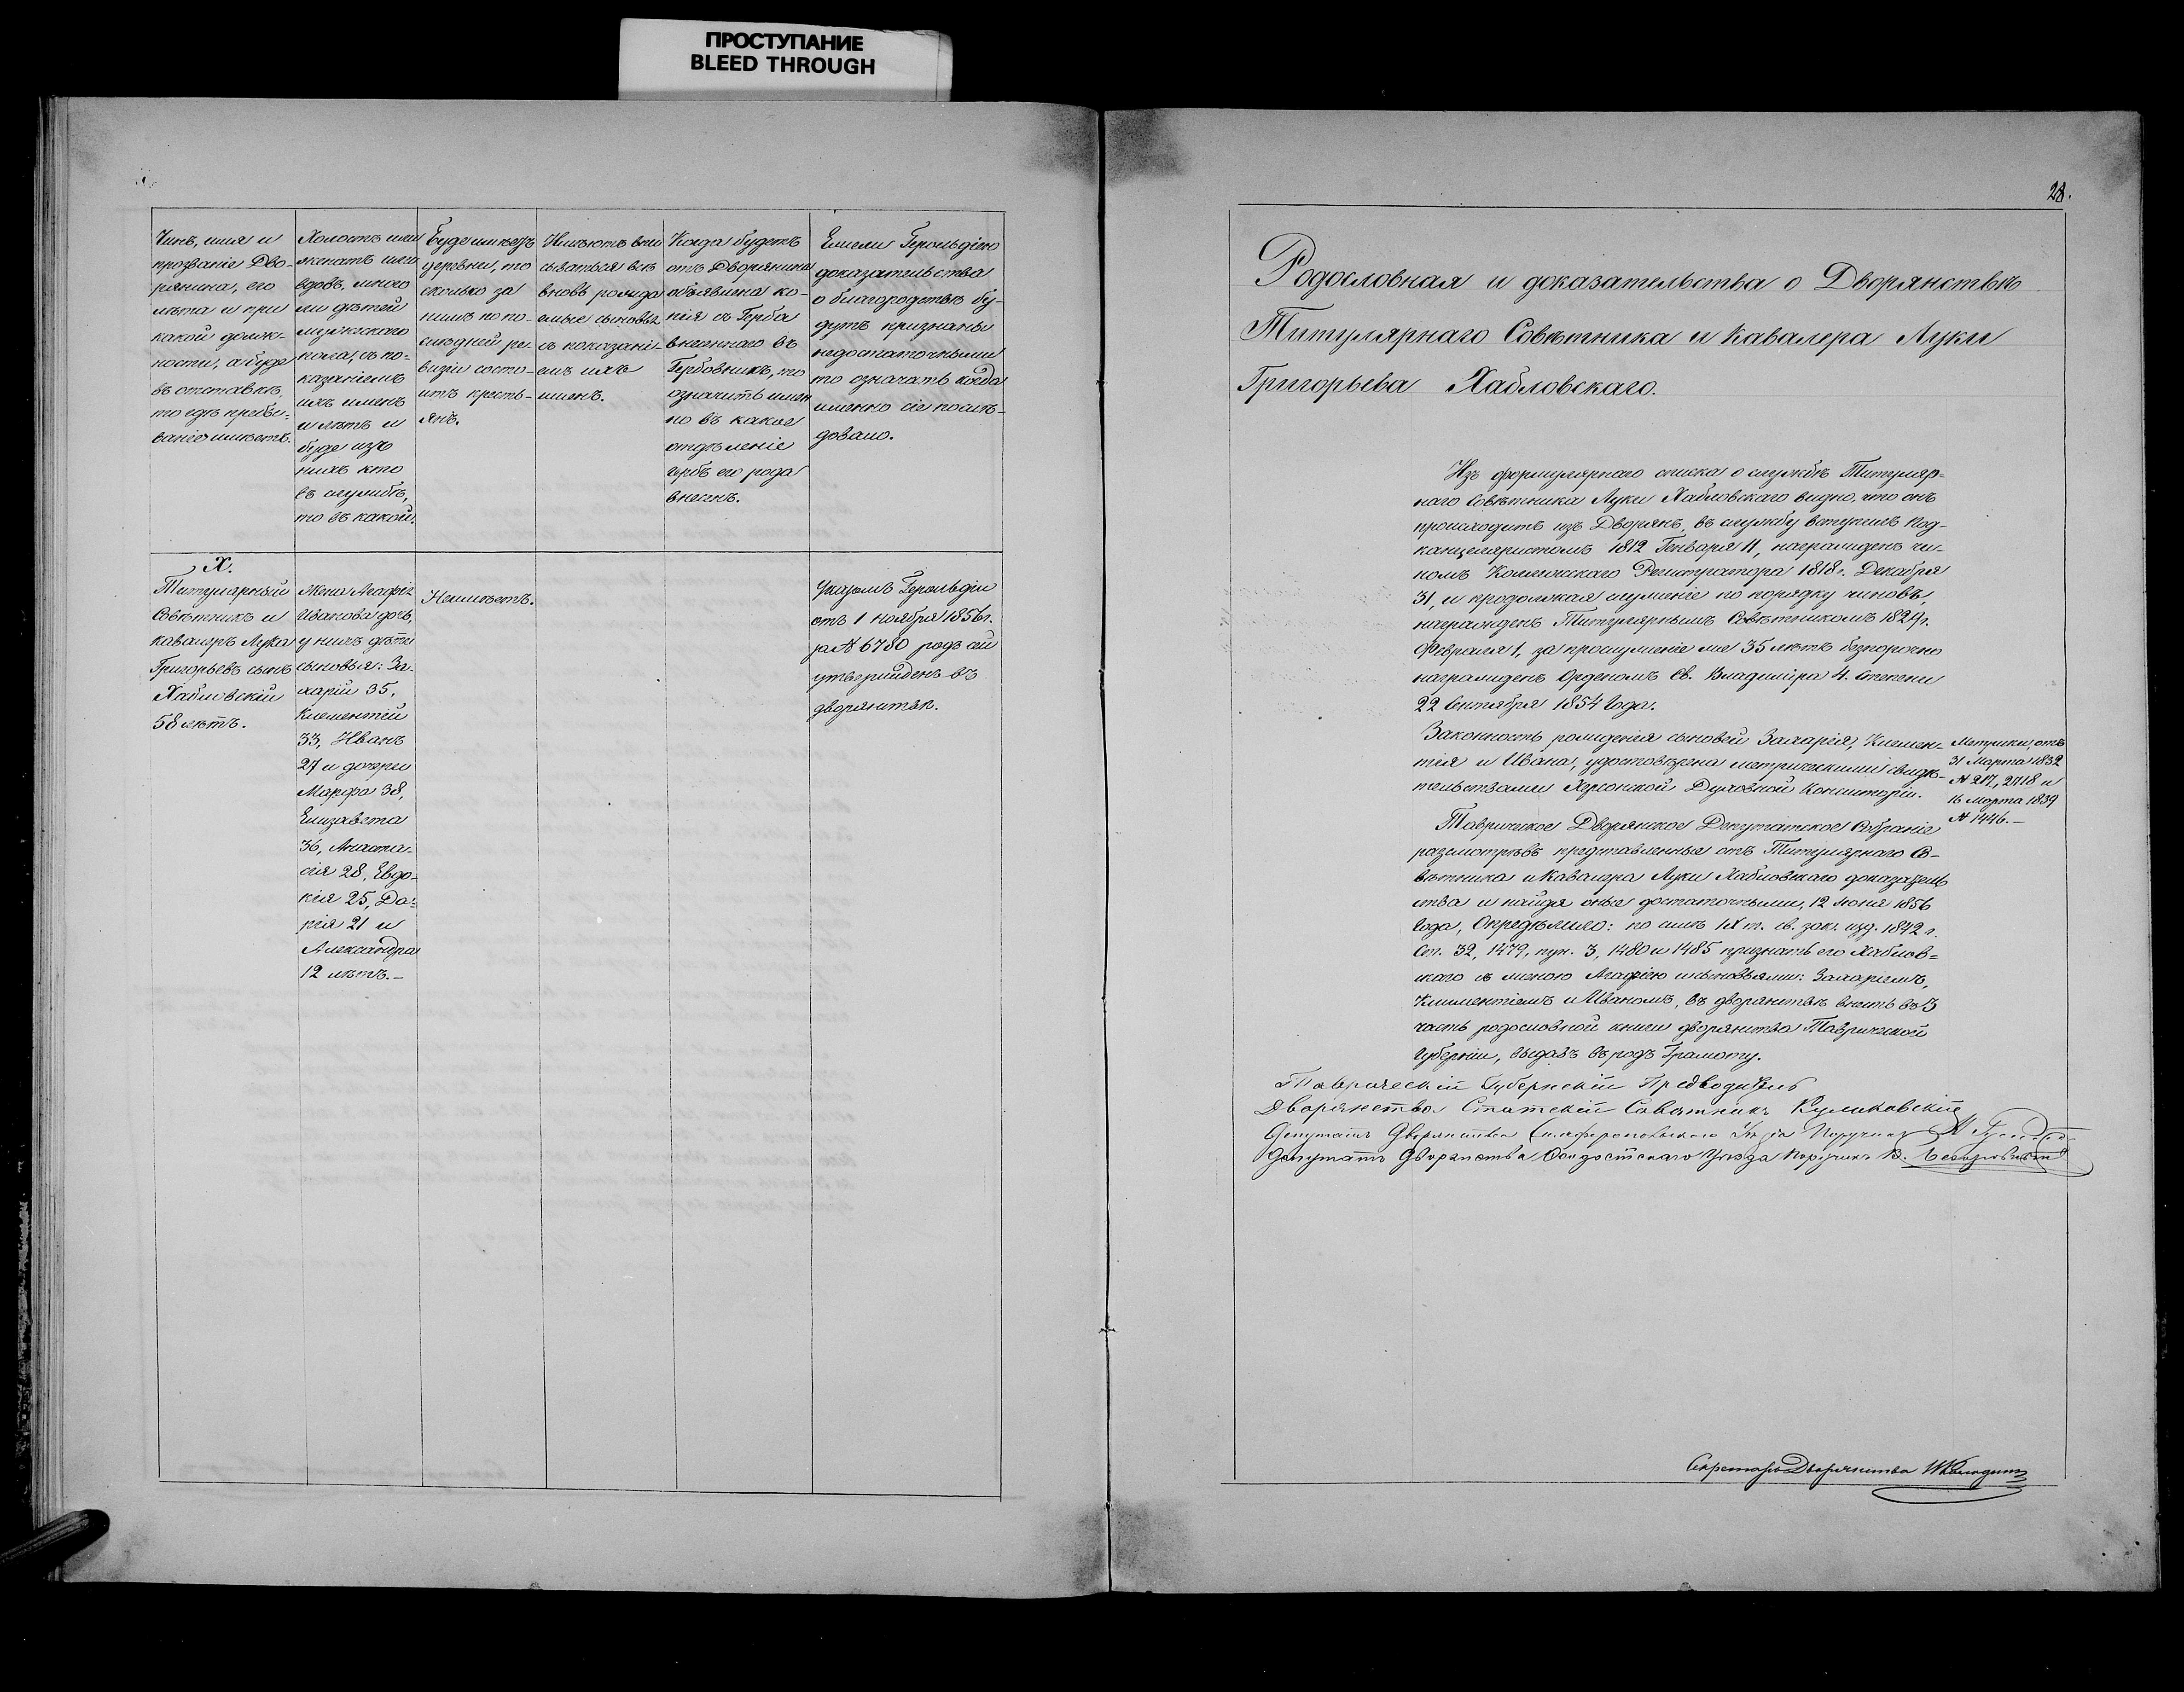 ПРОСТУПАНИЕ
BLEED THROUGH
Чинъ, имя и
прозваніе Дво-
рянина, его
лѣта и при
какой долж-
ности, а буде
въ отставкѣ,
то гдѣ пребы-
ваніе имѣетъ.
Холостъ или
женатъ или
вдовъ, много
ли дѣтей
мужскаго
пола, съ по-
казаніемъ
ихъ именъ
и лѣтъ и
буде изъ
нихъ кто
въ службѣ,
то въ какой.
Буде имѣетъ
деревни, то
сколько за
нимъ по по-
слѣдней ре-
визіи состо-
итъ кресть-
янъ.
Имѣютъ впи
сываться всѣ
вновь рожда
емые сыновья
съ показані-
емъ ихъ
именъ.
Когда будетъ
отъ Дворянина
объявлена ко-
пія съ Герба
внесеннаго въ
Гербовникъ, то
означить имен
но въ какое
отдѣленіе
гербъ его рода
внесенъ.
Ежели Герольдіею
доказательства
о благородствѣ бу-
дутъ признаны
недостаточными
то означать когда
именно сіе послѣ-
довало.
X.
Титулярный
Совѣтникъ и
Кавалеръ Лука
Григорьевъ сынъ
Хабловскій
58 лѣтъ.
Жена Агафія
Иванова дочь,
у нихъ дѣти
сыновья: За-
харій 35,
Клементій
33, Иванъ
27 и дочери
Марфа 38,
Елизавета
36, Анаста-
сія 28, Евдо-
кія 25, Да-
рія 21 и
Александра
12 лѣтъ.-
Неимѣетъ.
Указомъ Герольдіи
отъ 1 ноября 1856 г.
за № 6780 родъ сей
утвержденъ въ
дворянствѣ.
28.
Родословная и доказательства о Дворянствѣ
Титулярнаго Совѣтника и Кавалера Луки
Григорьева Хабловскаго.
Изъ формулярнаго списка о службѣ Титуляр-
наго Совѣтника Луки Хабловскаго видно, что онъ
происходитъ изъ Дворянъ, въ службу вступилъ Под-
канцеляристомъ 1812 Генваря 11, награжденъ чи-
номъ Коллежскаго Регистратора 1818 г. Декабря
31, и продолжая служеніе по порядку чиновъ,
награжденъ Титулярнымъ Совѣтникомъ 1829 г.
Февраля 1, за прослуженіе же 35 лѣтъ безпорочно
награжденъ Орденомъ Св. Владиміра 4. Степени
22 Сентября 1854 Года.
Законность рожденія сыновей Захарія, Клемен-
тія и Ивана, удостовѣрена метрическими свидѣ-
тельствами Херсонской Духовной Консисторіи.
Метрики, отъ
31 Марта 1832
№ 217, 2718 и
16 Марта 1839
№ 1446.-
Таврическое Дворянское Депутатское Собраніе
разсмотрѣвъ представленные отъ Титулярнаго Со-
вѣтника и Кавалера Луки Хабловскаго доказатель
ства и найдя оные достаточными, 12 Іюня 1856
Года, Опредѣлило: по силѣ IX т. св. зак. изд. 1842 г.
Ст. 32, 1479, пун. 3, 1480 и 1485 признать его Хаблов-
скаго съ женою Агафіею и сыновьями: Захаріемъ,
Климентіемъ и Иваномъ, въ дворянствѣ внесть въ 3
часть родословной книги дворянства Таврической
губерніи, выдавъ въ родъ Грамоту.
Таврическій Губернскій Предводитель
Дворянства Статскій Совѣтникъ Куликовскій
Депутатъ Дворянства Симферопольскаго Уѣзда Поручикъ
Депутатъ Дворянства Ѳеодосійскаго Уѣзда Поручикъ В.
Секретарь Дворянства